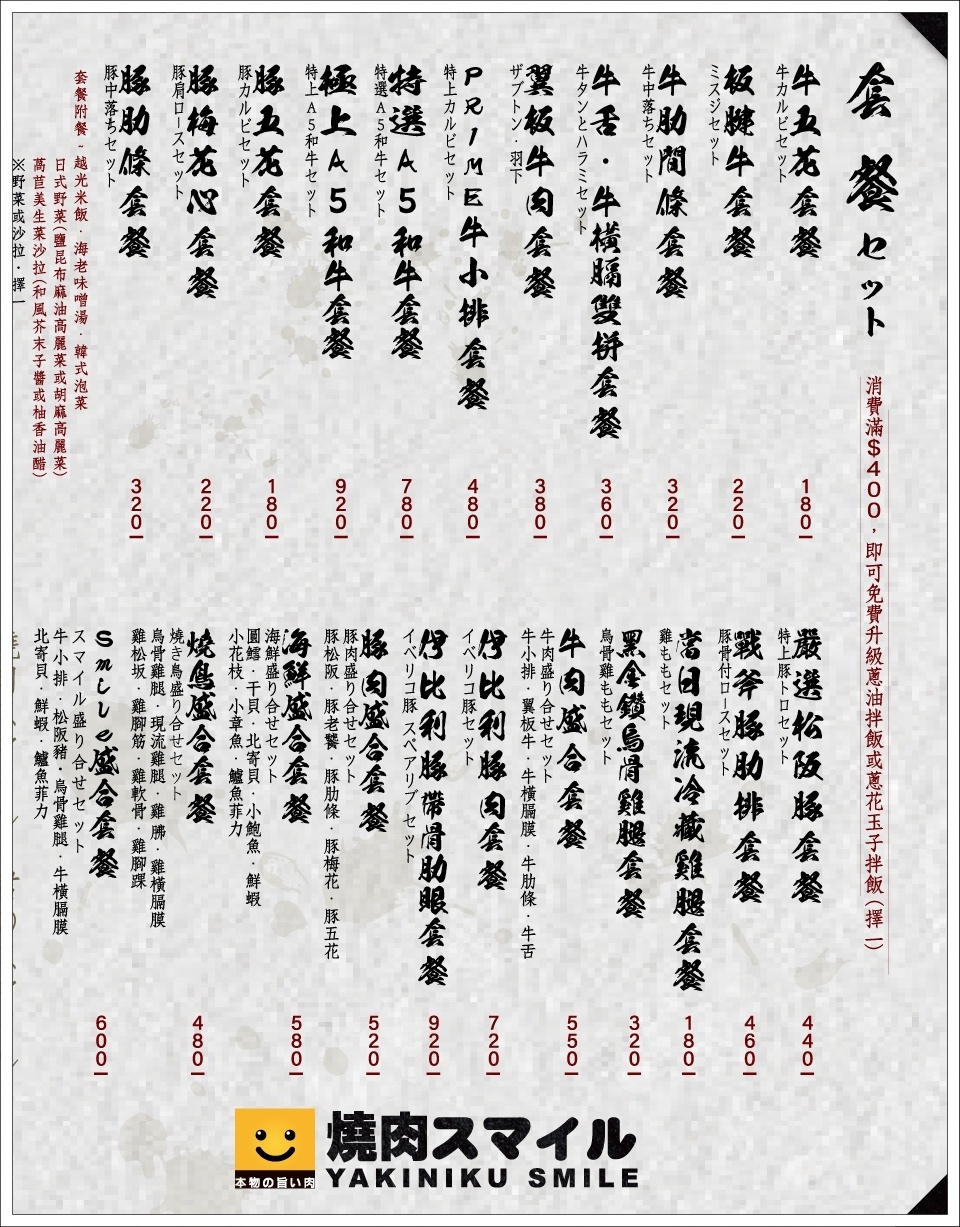 套餐セット
消費滿$400，即可免費升級蔥油拌飯或蔥花玉子拌飯(擇一)
牛五花套餐
牛カルビセット
180
板腱牛套餐
ミスジセット
220
牛肋間條套餐
牛中落ちセット
320
牛舌・牛橫膈雙拼套餐
牛タンとハラミセット
360
翼板牛肉套餐
ザブトン・羽下
380
PRIME牛小排套餐
特上カルビセット
480
特選A5和牛套餐
特選A5和牛セット
780
極上A5和牛套餐
特上A5和牛セット
920
豚五花套餐
豚カルビセット
180
豚梅花心套餐
豚肩ロースセット
220
豚肋條套餐
豚中落ちセット
320
套餐附餐~越光米飯．海老味噌湯．韓式泡菜
日式野菜(鹽昆布麻油高麗菜或胡麻高麗菜)
萵苣美生菜沙拉(和風芥末子醬或柚香油醋)
※野菜或沙拉．擇一
嚴選松阪豚套餐
特上豚トロセット
440
戰斧豚肋排套餐
豚骨付ロースセット
460
當日現流冷藏雞腿套餐
雞ももセット
180
黑金鑽烏骨雞腿套餐
烏骨雞ももセット
320
牛肉盛合套餐
牛肉盛り合せセット
牛小排．翼板牛．牛橫膈膜．牛肋條．牛舌
550
伊比利豚肉套餐
イベリコ豚セット
720
伊比利豚帶骨肋眼套餐
イベリコ豚 スペアリブ セット
920
豚肉盛合套餐
豚肉盛り合せセット
豚松阪．豚老饕．豚肋條．豚梅花．豚五花
520
海鮮盛合套餐
海鮮盛り合せセット
圓鱈．干貝．北寄貝．小鮑魚．鮮蝦
小花枝．小章魚．鱸魚菲力
580
燒鳥盛合套餐
燒き鳥盛り合せセット
烏骨雞腿．現流雞腿．雞胸．雞橫膈膜
雞松坂．雞腳筋．雞軟骨．雞腳踝
480
Smile盛合套餐
スマイル盛り合せセット
牛小排．松阪豬．烏骨雞腿．牛橫膈膜
北寄貝．鮮蝦．鱸魚菲力
600
本物の旨い肉
燒肉スマイル
YAKINIKU SMILE